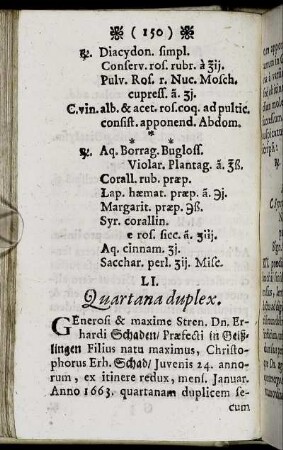 ❋ ( 150 ) ❋
℞. Diacydon. simpl.
Conserv. ros. rubr. à ʒij.
Pulv. Ros. r. Nuc. Mosch.
cupress. ã. ʒj.
C. vin. alb. & acet. ros. coq. ad pultic.
consist. apponend. Abdom.
* * *
℞. Aq. Borrag. Bugloss.
Violar. Plantag. ã. ℥ß.
Corall. rub. præp.
Lap. hæmat. præp. ã. ℈j.
Margarit. præp. ℈ß.
Syr. corallin.
e ros. sicc. ã. ʒiij.
Aq. cinnam. ʒj.
Sacchar. perl. ʒij. Misc.
LI.
Quartana duplex.
GEnerosi & maxime Stren. Dn. Er-
hardi Schaden/ Præfecti in Geiß-
lingen Filius natu maximus, Christo-
phorus Erh. Schad/ Juvenis 24. anno-
rum, ex itinere redux, mens. Januar.
Anno 1663. quartanam duplicem se-
cum